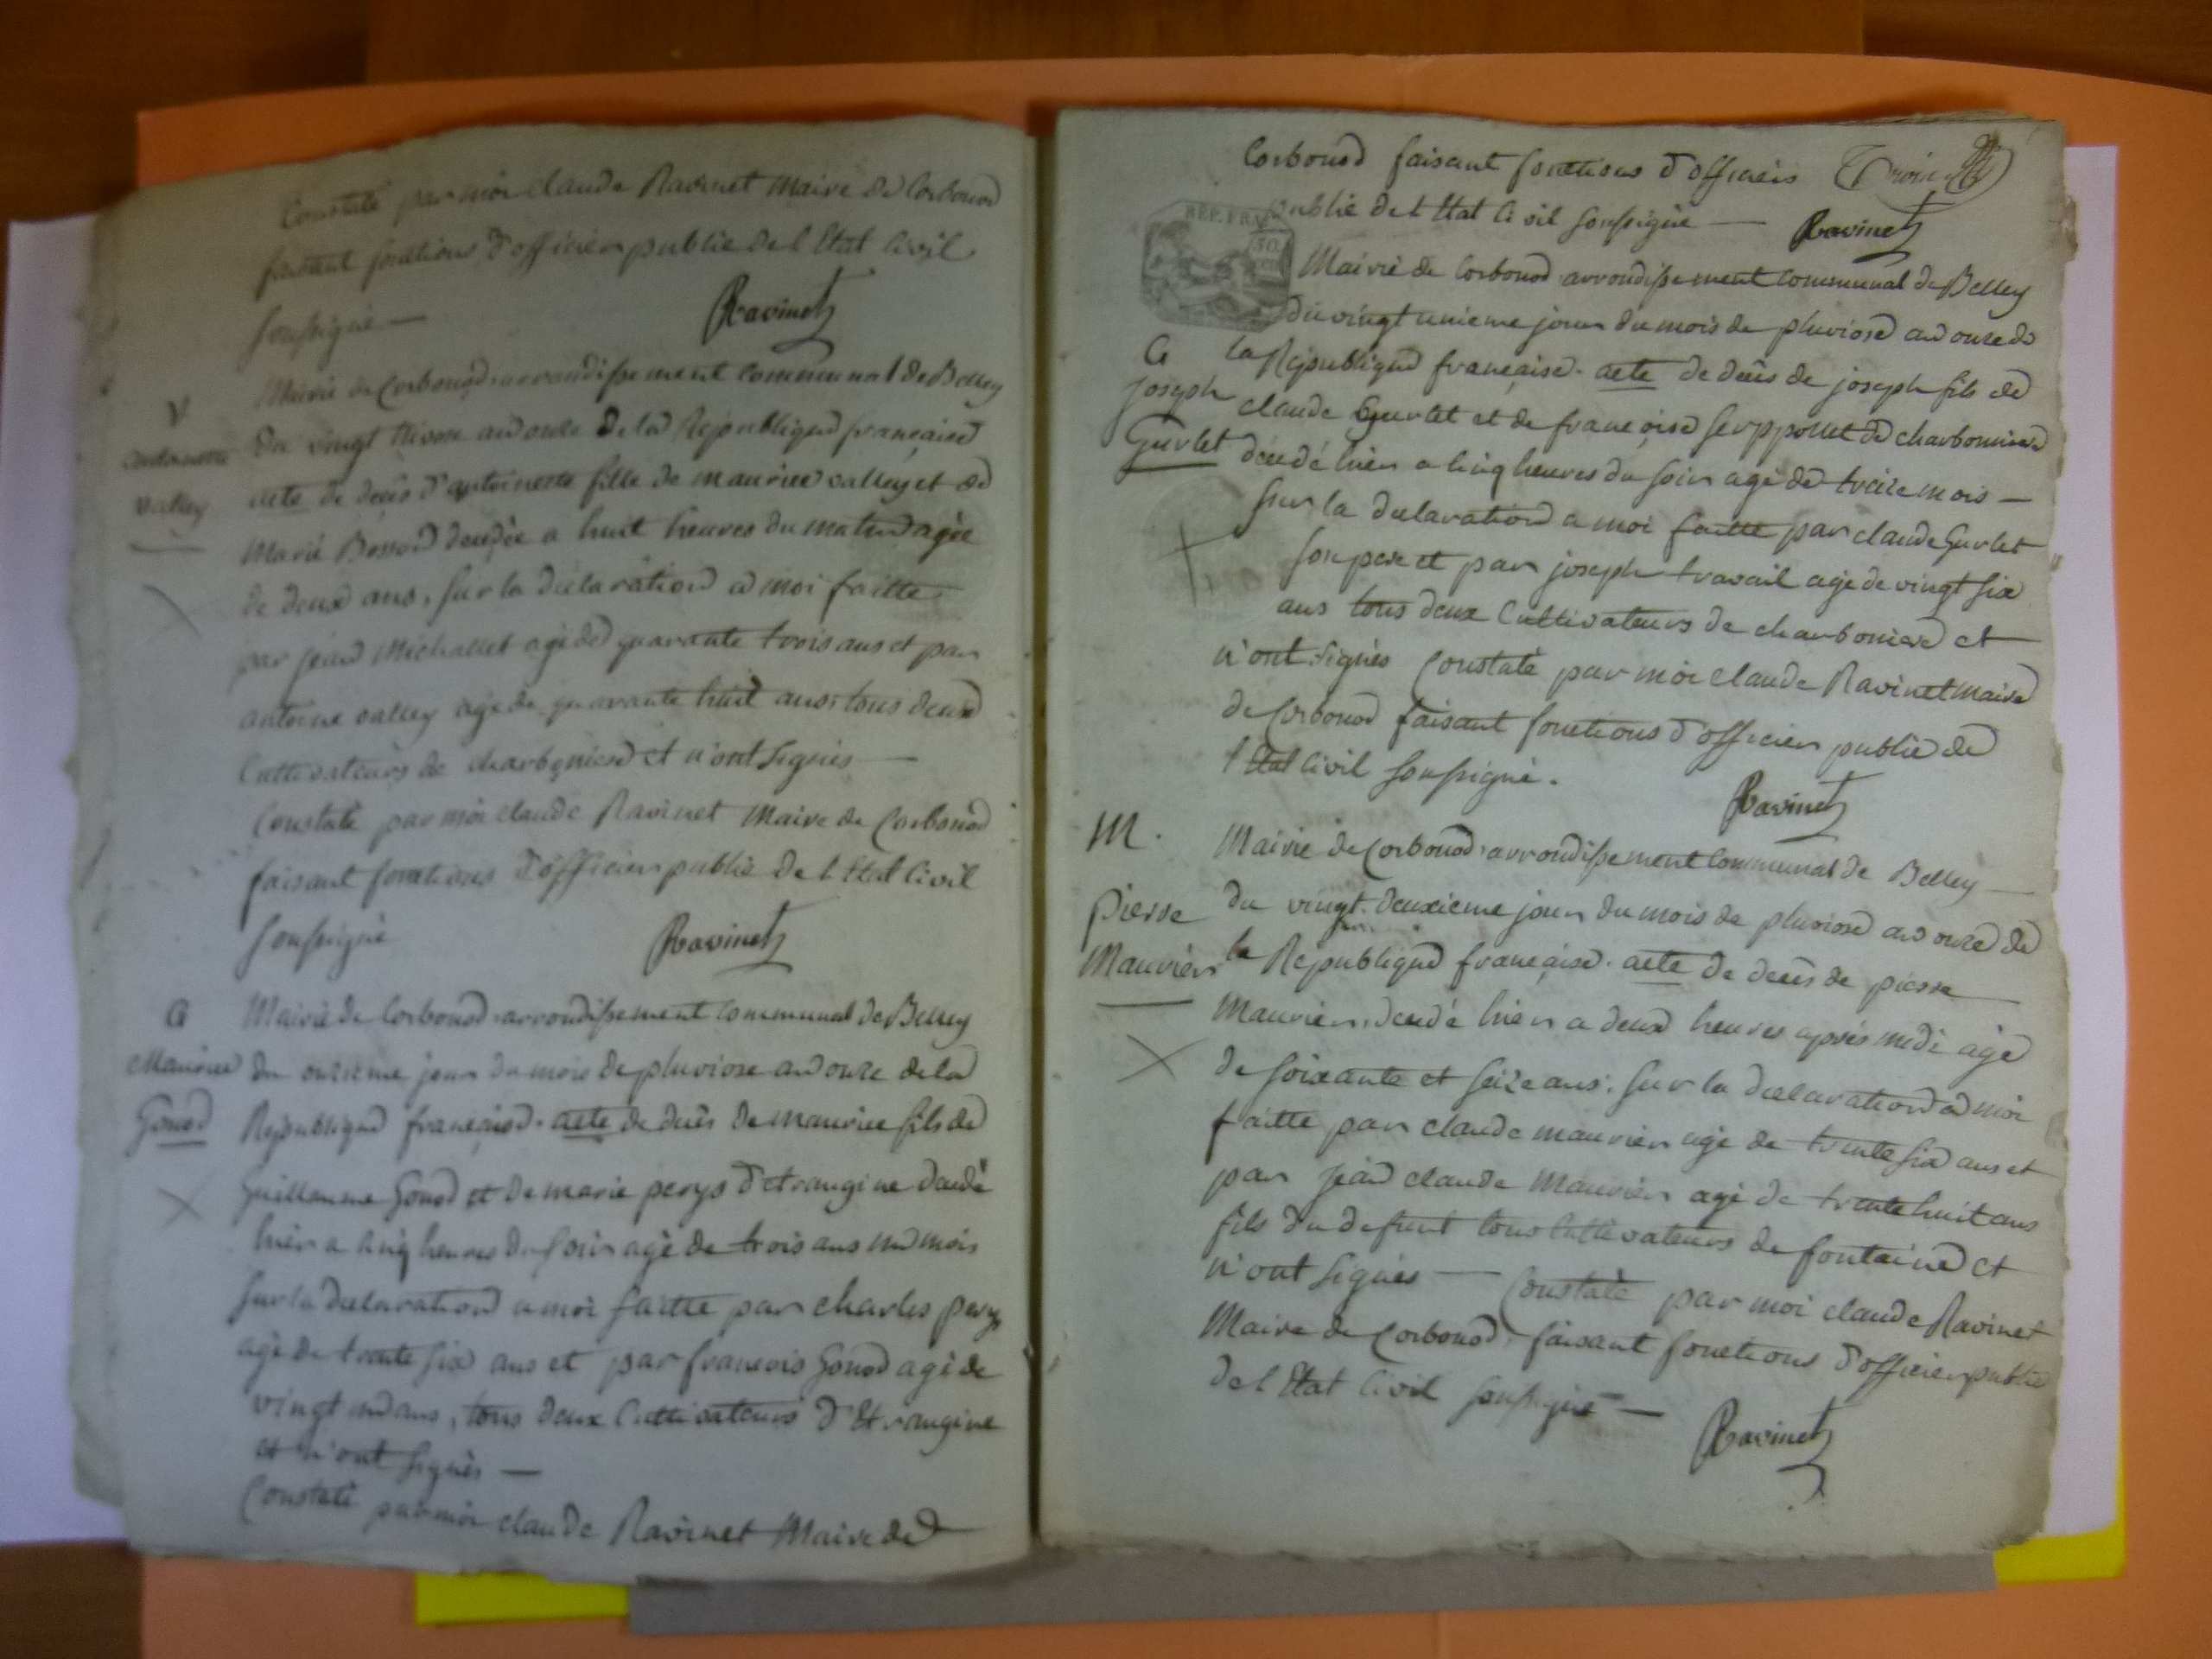 Constaté par moi claude Ravinet Maire de Corbonod
faisant fonctions d'officier public de l'Etat Civil
soussigné —
Ravinet
V
antoinette
valley
Mairie de Corbonod, arrondissement communal de Belley
du vingt Nivose an onze de la Republique française
acte de decès d'antoinette fille de maurice valley et de
Marie Bossond decedée a huit heures du matin agée
de deux ans, sur la declaration a moi faitte
par jean Michallet agé de quarante trois ans et par
antoine valley agé de quarante huit ans, tous deux
Cultivateurs de charboniere et n'ont signés —
Constaté par moi claude Ravinet Maire de Corbonod
faisant fonctions d'officier public de l'Etat Civil
soussigné
Ravinet
G
Maurice
Gonod
Mairie de Corbonod, arrondissement communal de Belley
du onzieme jour du mois de pluviose an onze de la
Republique française. acte de decès de maurice fils de
Guillaume Gonod et de marie perys d'etrangine decedé
hier a cinq heures du soir agé de trois ans un mois
sur la declaration a moi faitte par charles perys
agé de trente six ans et par francois Gonod agé de
vingt un ans, tous deux Cultivateurs d'Etrangine
et n'ont signés —
Constaté par moi claude Ravinet Maire de
Corbonod faisant fonctions d'officiers
public de l'Etat Civil soussigné —
Ravinet
REP. FRA
50
Mairie de Corbonod arrondissement communal de Belley
du vingt unieme jour du mois de pluviose an onze de
G
joseph
Gurlet
la Republique française. acte de decès de joseph fils de
claude Gurlet et de françoise serppollet de charboniere
decedé hier a cinq heures du soir agé de treize mois —
sur la declaration a moi faitte par claude Gurlet
son pere et par joseph travail agé de vingt six
ans tous deux Cultivateurs de charboniere et
n'ont signés Constaté par moi claude Ravinet maire
de Corbonod faisant fonctions d'officier public de
l'Etat Civil soussigné.
Ravinet
M.
Pierre
Maurier
Mairie de Corbonod, arrondissement communal de Belley —
du vingt deuxieme jour du mois de pluviose an onze de
la Republique française. acte de decès de pierre
Maurier, decedé hier a deux heures après midi agé
de soixante et seize ans. sur la declaration a moi
faitte par claude maurier agé de trente six ans et
par jean claude Maurier agé de trente huit ans
fils du defunt tous Cultivateurs de fontaine et
n'ont signés — Constaté par moi claude Ravinet
Maire de Corbonod, faisant fonctions d'officier public
de l'Etat Civil soussigné —
Ravinet